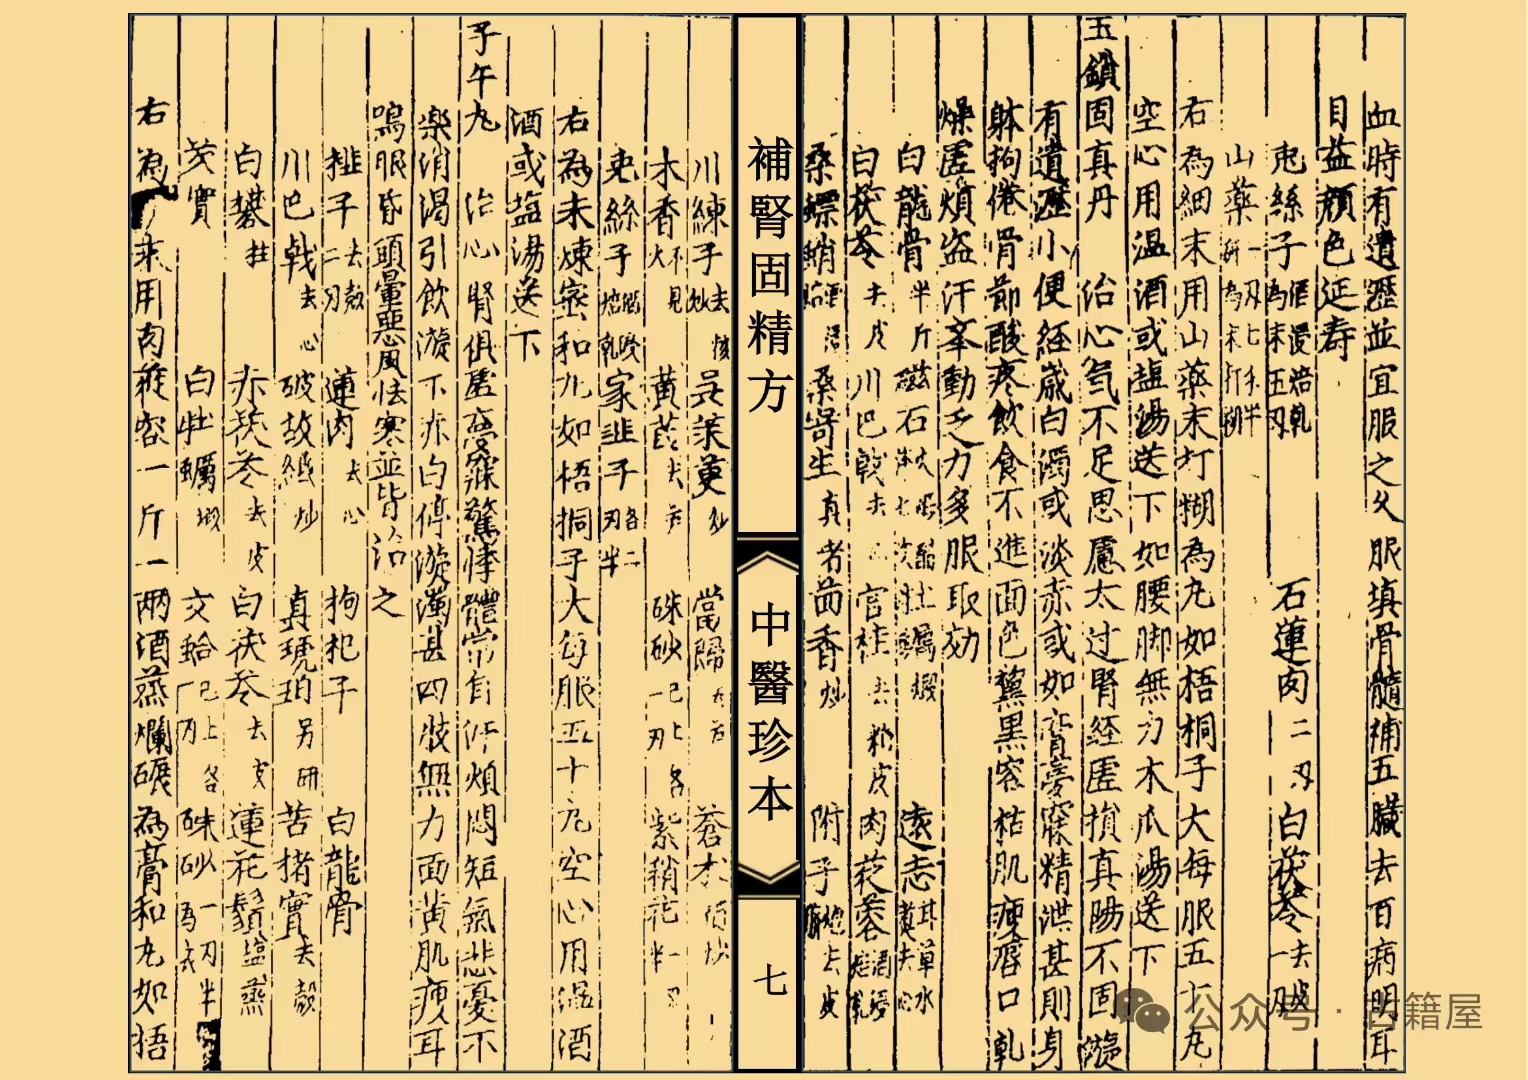 血時有遺瀝並宜服之久服填骨髓補五臟去百病明耳
目益顏色延壽
兎絲子酒浸焙乾為末五刄 石蓮肉二刄 白茯苓去皮一刄
山藥一刄七木半研為末打糊
右為細末用山藥末打糊為丸如梧桐子大每服五十丸
空心用温酒或塩湯送下如腰脚無力木瓜湯送下
玉鎖固真丹 治心氣不足思慮太过腎経虚損真陽不固漩
有遺瀝小便経歲白濁或淡赤或如膏夢寐精泄甚則身
躰拘倦骨節酸疼飲食不進面色黧黑容枯肌瘦唇口乾
燥虚煩盗汗举動乏力多服取効
白龍骨半斤 磁石 牡蠣煅 遠志
白茯苓去皮 川巴戟去心 官桂去粗皮 肉苁蓉酒浸焙乾
桑螵蛸 桑寄生真者 茴香炒 附子炮去皮臍
補腎固精方
中醫珍本
七
川練子去核炒 吳茱萸炒 當歸 蒼术
木香不見火 黃芪去芦 硃砂已上各一刄 紫稍花一刄半
兎絲子 家韭子各二刄半
右為末煉蜜和丸如梧桐子大每服五十丸空心用温酒
酒或塩湯送下
子午丸 治心腎俱虚夢寐驚悸體常自汗煩悶短氣悲憂不
樂消渴引飲漩下赤白停漩濁甚四肢無力面黃肌瘦耳
鳴眼昏頭暈惡風怯寒並皆治之
榧子去殼二刄 蓮肉去心 拘杞子 白龍骨
川巴戟去心 破故紙炒 真琥珀另研 苦楮實去殼
白礬枯 赤茯苓去皮 白茯苓去皮 蓮花鬚塩蒸
芡實 白牡蠣煅 文蛤已上各一刄 硃砂一刄半為衣
右為末用肉蓯容一斤一兩酒蒸爛碾為膏和丸如捂
公众号·古籍屋